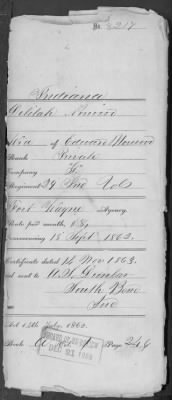 No. 3217
Indiana
Delilah
Wid of Edward
Rank Private
Company F
Regiment 29 Ind Vols
Fort Wayne Agency.
Rate per month, $8,
Commencing 18 Sept 1863.
Certificate dated 14 Nov 1863.
and sent to
South Bend
Ind
Act 14th July 1862.
Book Page 246
DEC 21